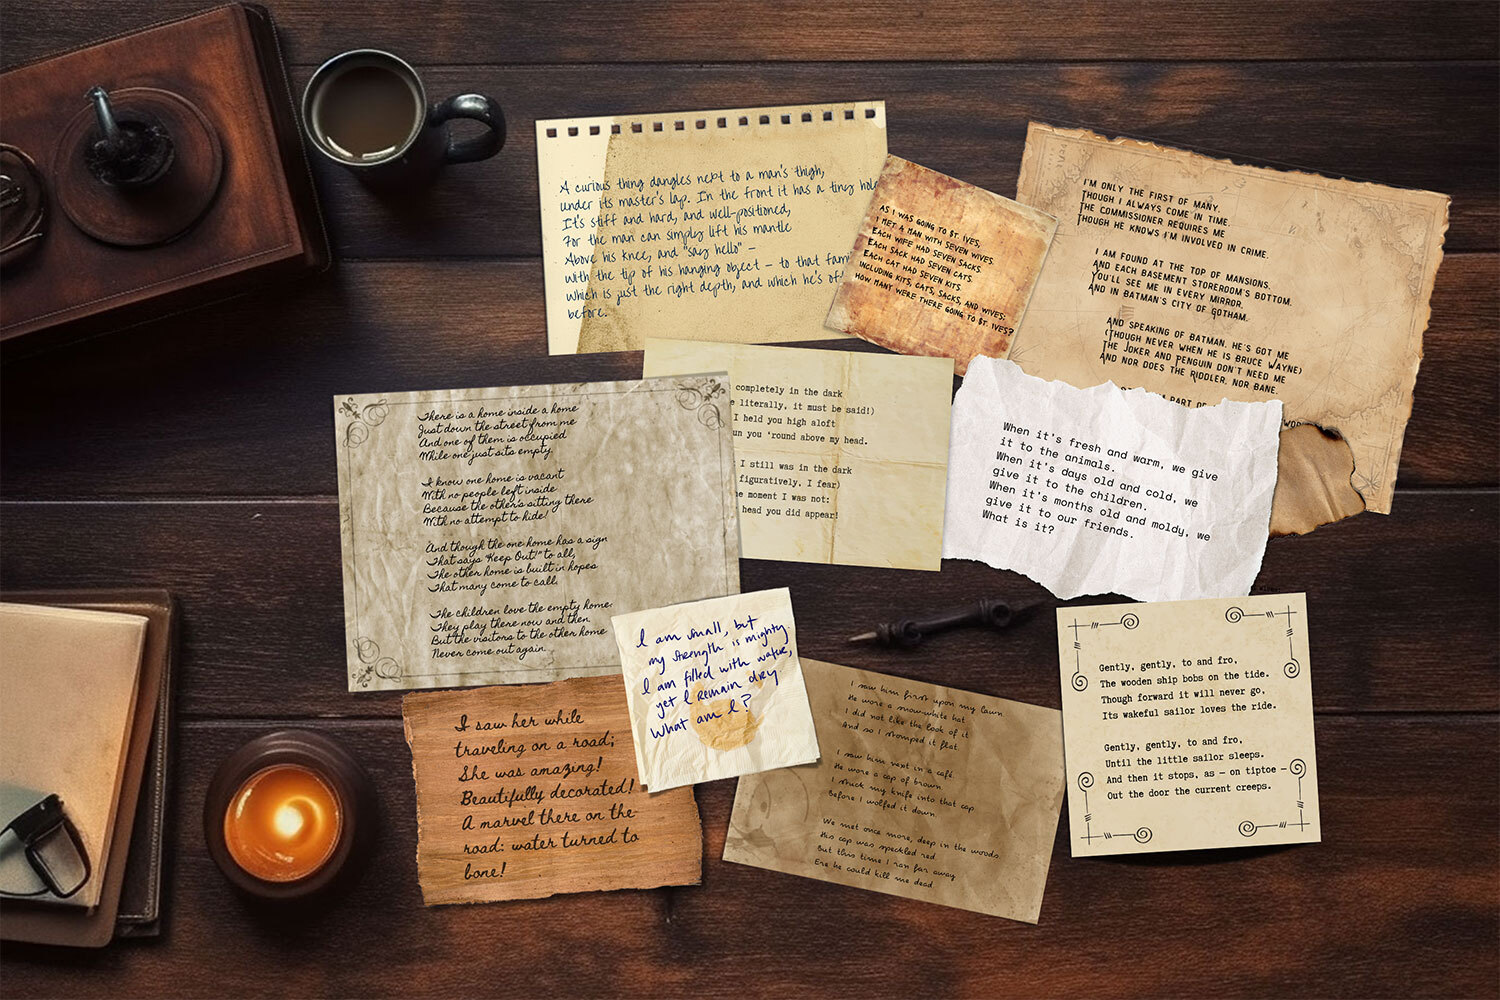 A curious thing dangles next to a man's thigh,
under its master's lap. In the front it has a tiny hole
It's stiff and hard, and well-positioned,
For the man can simply lift his mantle
Above his knee, and "say hello" –
with the tip of his hanging object – to that
which is just the right depth, and which he's
before.
AS I WAS GOING TO ST. IVES,
I MET A MAN WITH SEVEN WIVES.
EACH WIFE HAD SEVEN SACKS.
EACH SACK HAD SEVEN CATS.
EACH CAT HAD SEVEN KITS.
INCLUDING KITS, CATS, SACKS, AND WIVES:
HOW MANY WERE THERE GOING TO ST. IVES?
I'M ONLY THE FIRST OF MANY.
THOUGH I ALWAYS COME IN TIME.
THE COMMISSIONER REQUIRES ME
THOUGH HE KNOWS I'M INVOLVED IN CRIME.
I AM FOUND AT THE TOP OF MANSIONS.
AND EACH BASEMENT STOREROOM'S BOTTOM.
YOU'LL SEE ME IN EVERY MIRROR.
AND IN BATMAN'S CITY OF GOTHAM.
AND SPEAKING OF BATMAN. HE'S GOT ME
(THOUGH NEVER WHEN HE IS BRUCE WAYNE)
THE JOKER AND PENGUIN DON'T NEED ME
AND NOR DOES THE RIDDLER, NOR BANE.
PART OF
There is a home inside a home
Just down the street from me
And one of them is occupied
While one just sits empty.
I know one home is vacant
With no people left inside
Because the other's sitting there
With no attempt to hide!
And though the one home has a sign
That says "Keep Out!" to all,
The other home is built in hopes
That many come to call.
The children love the empty home:
They play there now and then
But the visitors to the other home
Never come out again.
completely in the dark
literally, it must be said!)
I held you high aloft
you 'round above my head.
I still was in the dark
figuratively, I fear)
moment I was not:
head you did appear!
When it's fresh and warm, we give
it to the animals.
When it's days old and cold, we
give it to the children.
When it's months old and moldy, we
give it to our friends.
What is it?
I am small, but
my strength is mighty
I am filled with water,
yet I remain dry
What am I?
I saw her while
traveling on a road;
She was amazing!
Beautifully decorated!
A marvel there on the
road: water turned to
bone!
I saw him first upon my lawn
He wore a snow-white hat
I did not like the look of it
And so I stomped it flat
I saw him next in a café.
He wore a cap of brown
I stuck my knife into that cap
Before I wolfed it down.
We met once more, deep in the woods.
His cap was speckled red
But this time I ran far away
Ere he could kill me dead
Gently, gently, to and fro,
The wooden ship bobs on the tide.
Though forward it will never go,
Its wakeful sailor loves the ride.
Gently, gently, to and fro,
Until the little sailor sleeps.
And then it stops, as – on tiptoe –
Out the door the current creeps.